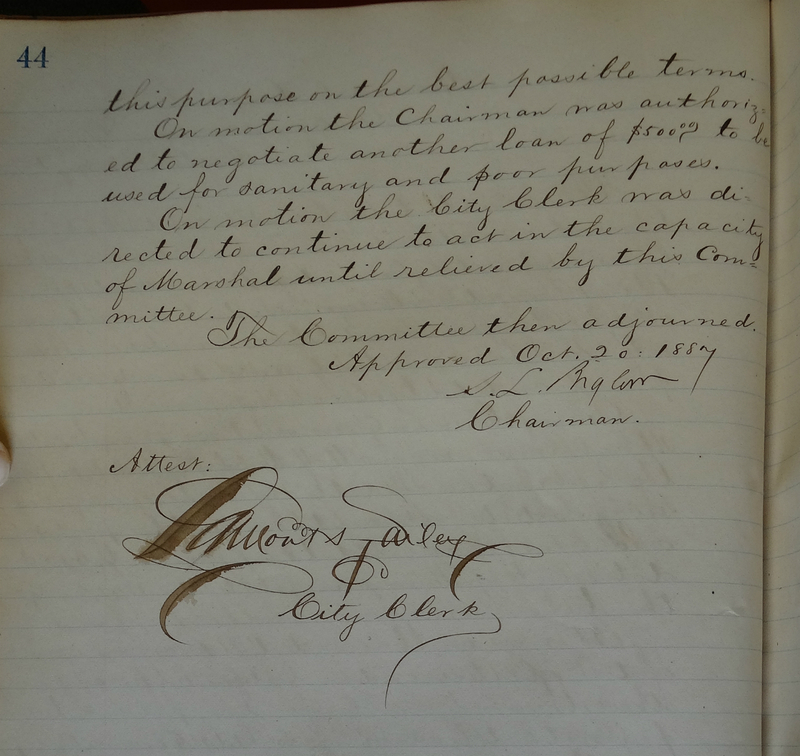 44
this purpose on the best possible terms.
On motion the Chairman was authoriz=
ed to negotiate another loan of $500.00 to be
used for sanitary and poor purposes.
On motion the City Clerk was di-
rected to continue to act in the capacity
of Marshal until relieved by this Com=
mittee.
The Committee then adjourned.
Approved Oct. 20: 1887
S. L.
Chairman.
Attest:
Lamont Bailey
City Clerk